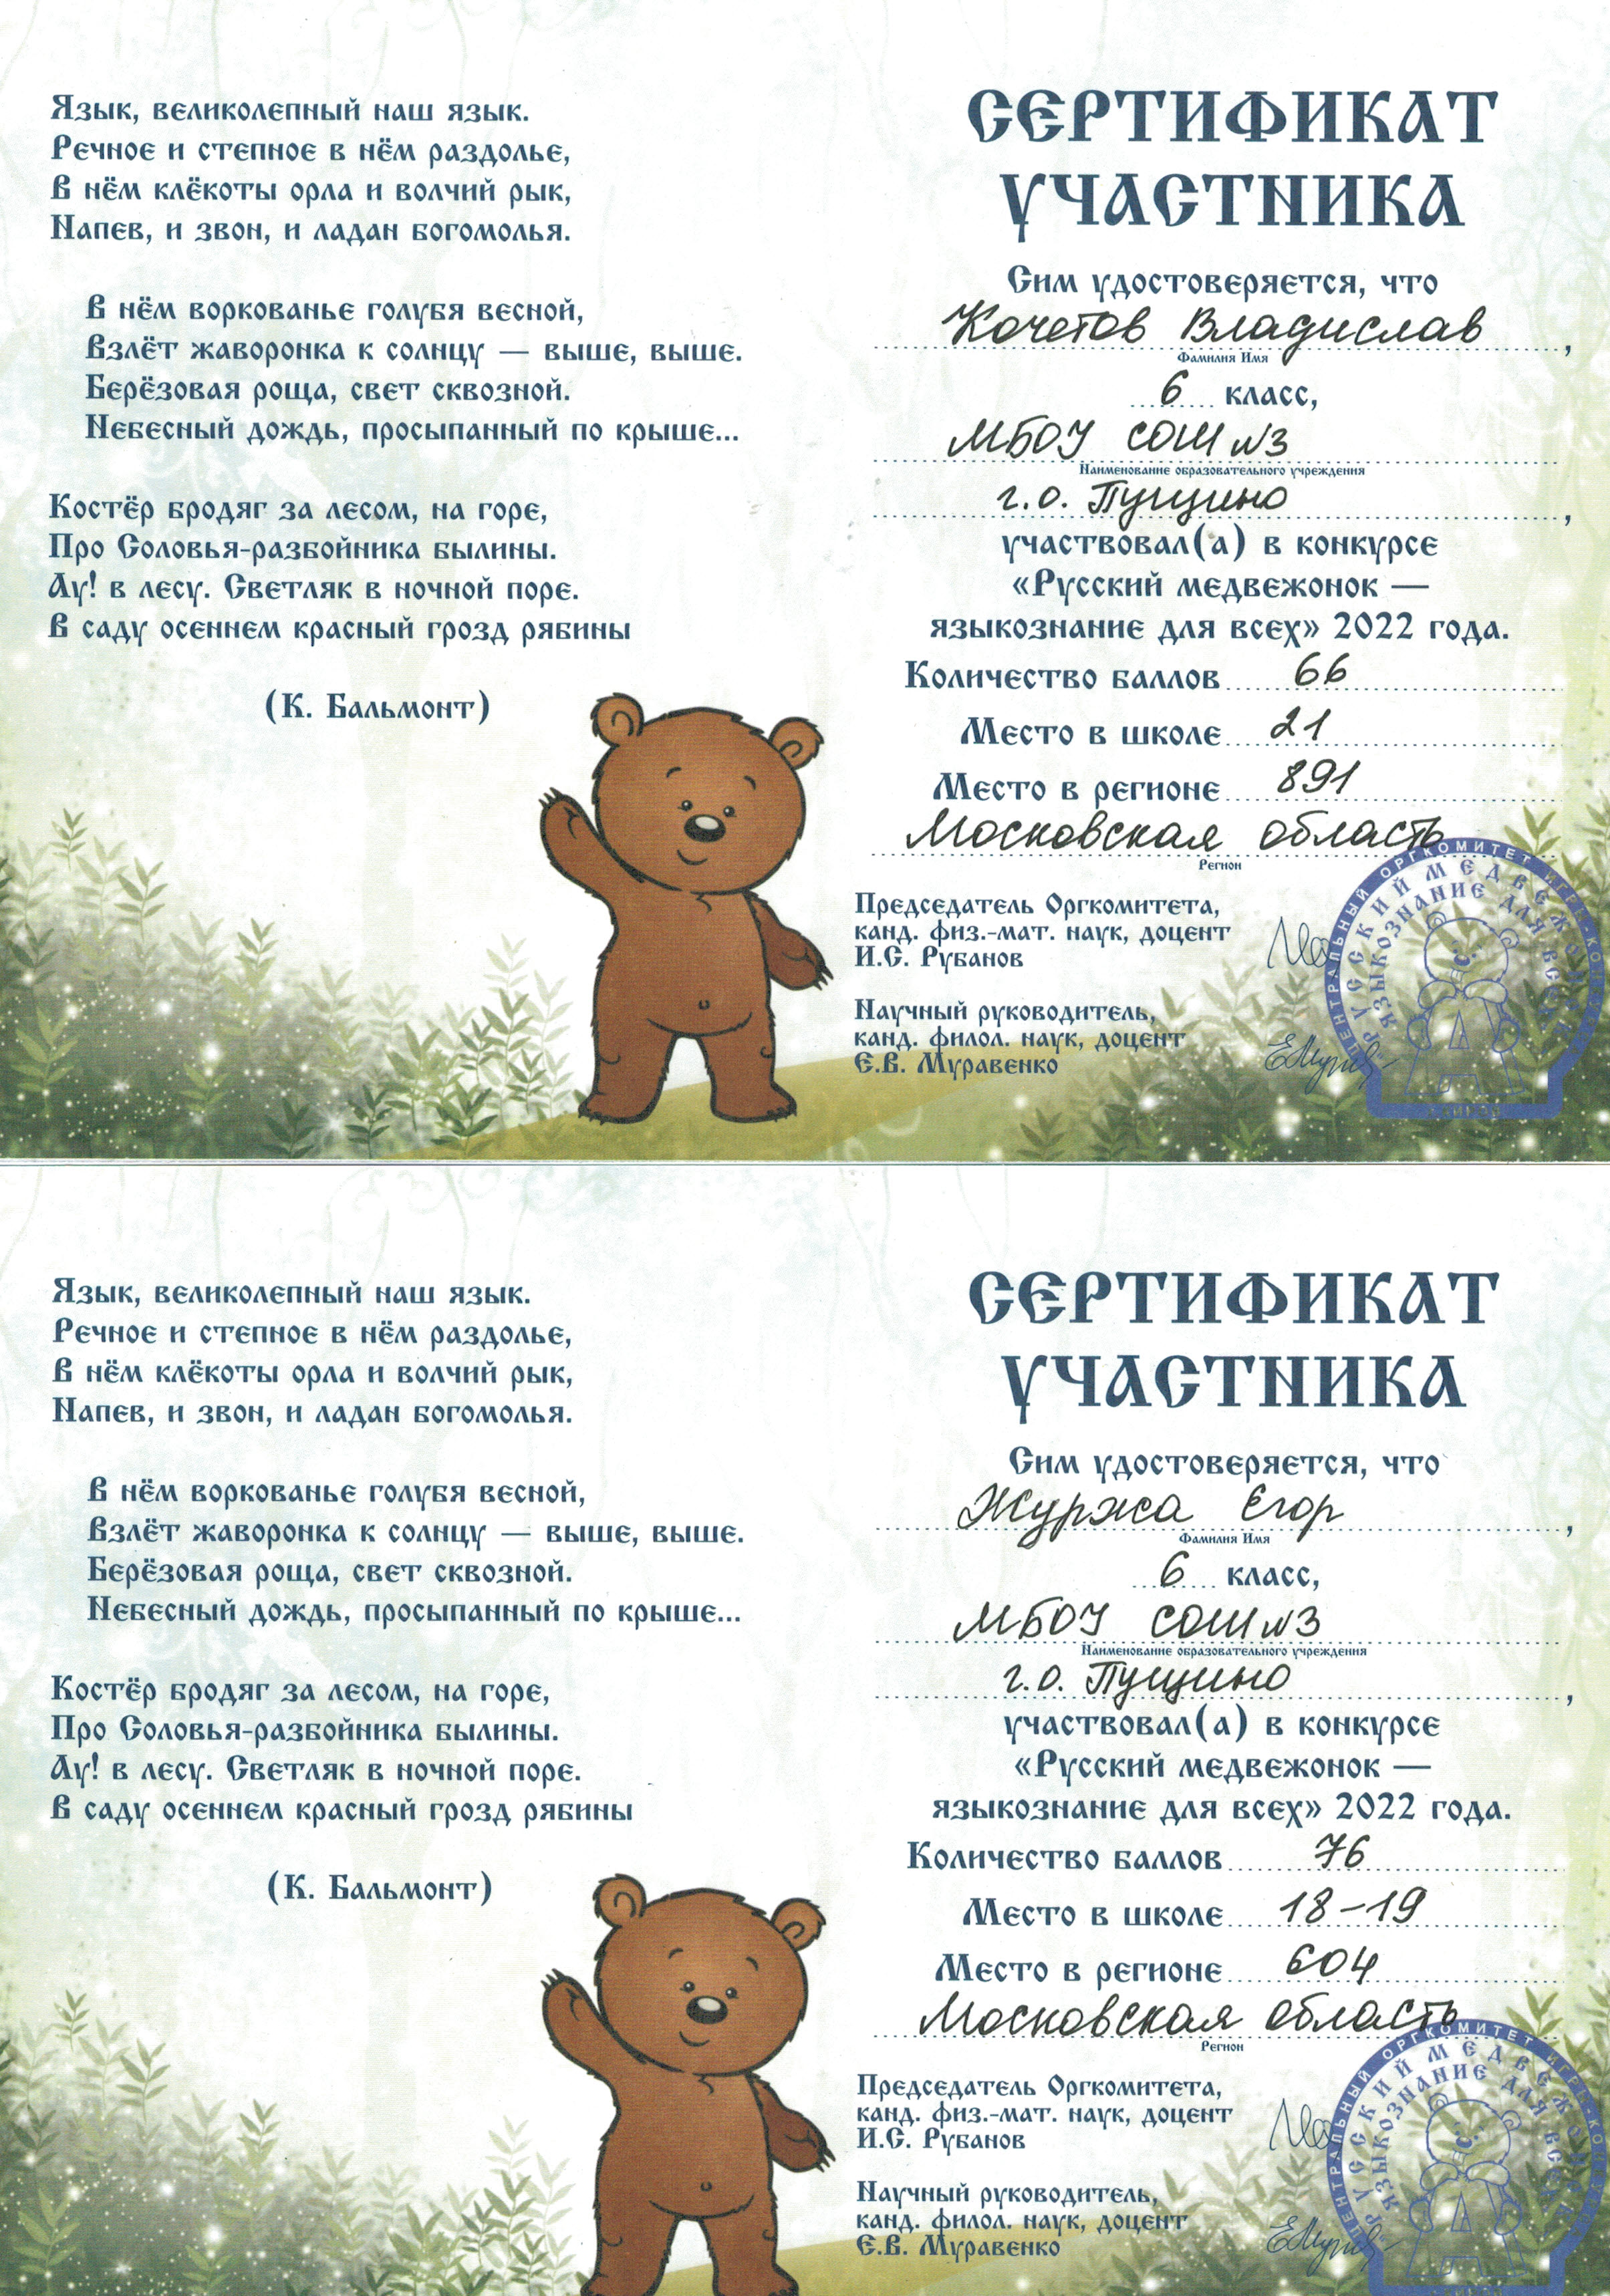 Язык, великолепный наш язык.
Речное и степное в нём раздолье,
В нём клёкоты орла и волчий рык,
Напев, и звон, и ладан богомолья.
В нём воркованье голубя весной,
Взлёт жаворонка к солнцу — выше, выше.
Берёзовая роща, свет сквозной.
Небесный дождь, просыпанный по крыше...
Костёр бродяг за лесом, на горе,
Про Соловья-разбойника былины.
Ау! в лесу. Светляк в ночной поре.
В саду осеннем красный грозд рябины
(К. Бальмонт)
СЕРТИФИКАТ
УЧАСТНИКА
Сим удостоверяется, что
Кочетов Владислав,
Фамилия Имя
6 класс,
МБОУ СОШ №3
Наименование образовательного учреждения
г.о. Пущино,
участвовал(а) в конкурсе
«Русский медвежонок —
языкознание для всех» 2022 года.
Количество баллов 66
Место в школе 21
Место в регионе 891
Московская область
Регион
Председатель Оргкомитета,
канд. физ.-мат. наук, доцент
И.С. Рубанов
Научный руководитель,
канд. филол. наук, доцент
Е.В. Муравенко
ЦЕНТРАЛЬНЫЙ ОРГКОМИТЕТ ИГРЫ-КО
РУССКИЙ МЕДВЕЖОНОК
ЯЗЫКОЗНАНИЕ ДЛЯ ВСЕХ
Язык, великолепный наш язык.
Речное и степное в нём раздолье,
В нём клёкоты орла и волчий рык,
Напев, и звон, и ладан богомолья.
В нём воркованье голубя весной,
Взлёт жаворонка к солнцу — выше, выше.
Берёзовая роща, свет сквозной.
Небесный дождь, просыпанный по крыше...
Костёр бродяг за лесом, на горе,
Про Соловья-разбойника былины.
Ау! в лесу. Светляк в ночной поре.
В саду осеннем красный грозд рябины
(К. Бальмонт)
СЕРТИФИКАТ
УЧАСТНИКА
Сим удостоверяется, что
Журжа Егор,
Фамилия Имя
6 класс,
МБОУ СОШ №3
Наименование образовательного учреждения
г.о. Пущино,
участвовал(а) в конкурсе
«Русский медвежонок —
языкознание для всех» 2022 года.
Количество баллов 76
Место в школе 18-19
Место в регионе 604
Московская область
Регион
Председатель Оргкомитета,
канд. физ.-мат. наук, доцент
И.С. Рубанов
Научный руководитель,
канд. филол. наук, доцент
Е.В. Муравенко
ЦЕНТРАЛЬНЫЙ ОРГКОМИТЕТ ИГРЫ-КО
РУССКИЙ МЕДВЕЖОНОК
ЯЗЫКОЗНАНИЕ ДЛЯ ВСЕХ